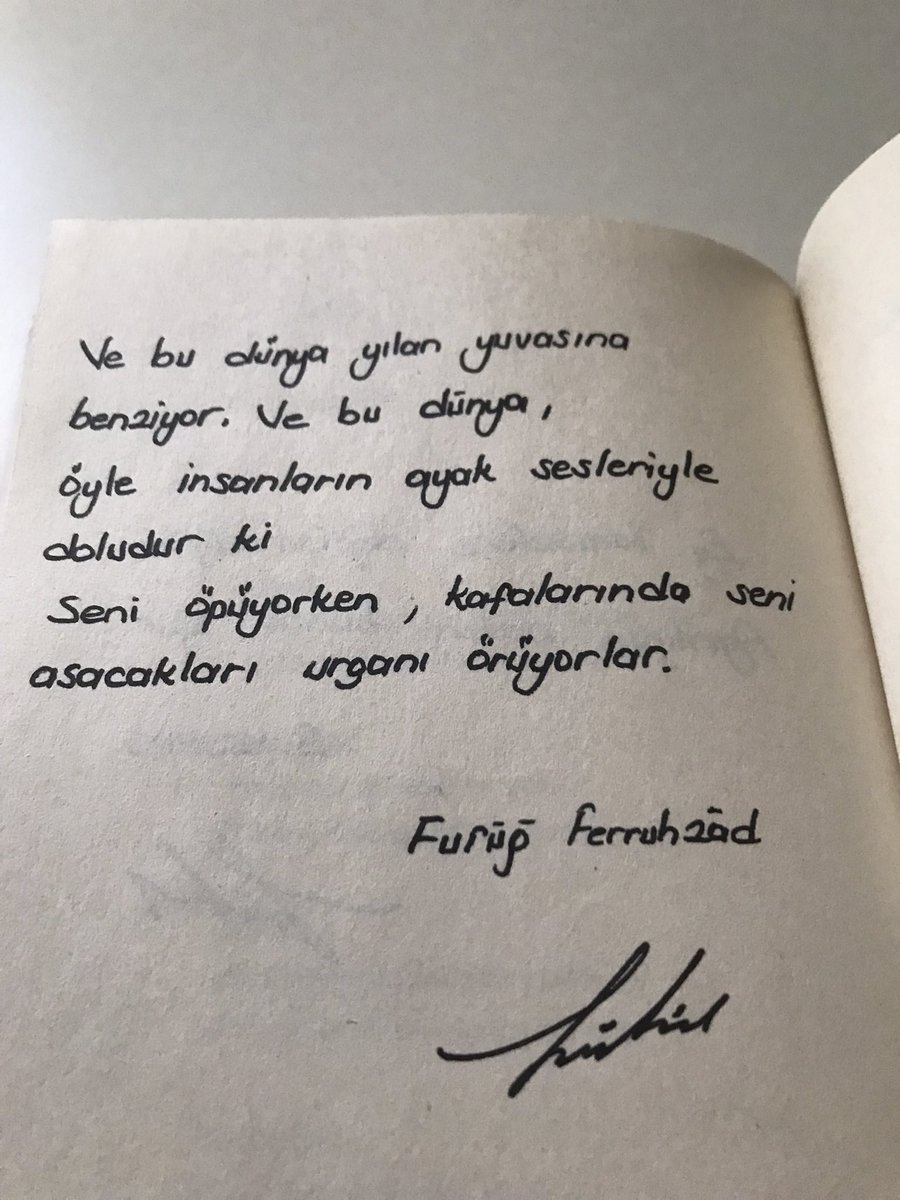 Ve bu dünya yılan yuvasına
benziyor. Ve bu dünya,
öyle insanların ayak sesleriyle
doludur ki
Seni öpüyorken, kafalarında seni
asacakları urganı örüyorlar.
Furūğ Ferruhzād